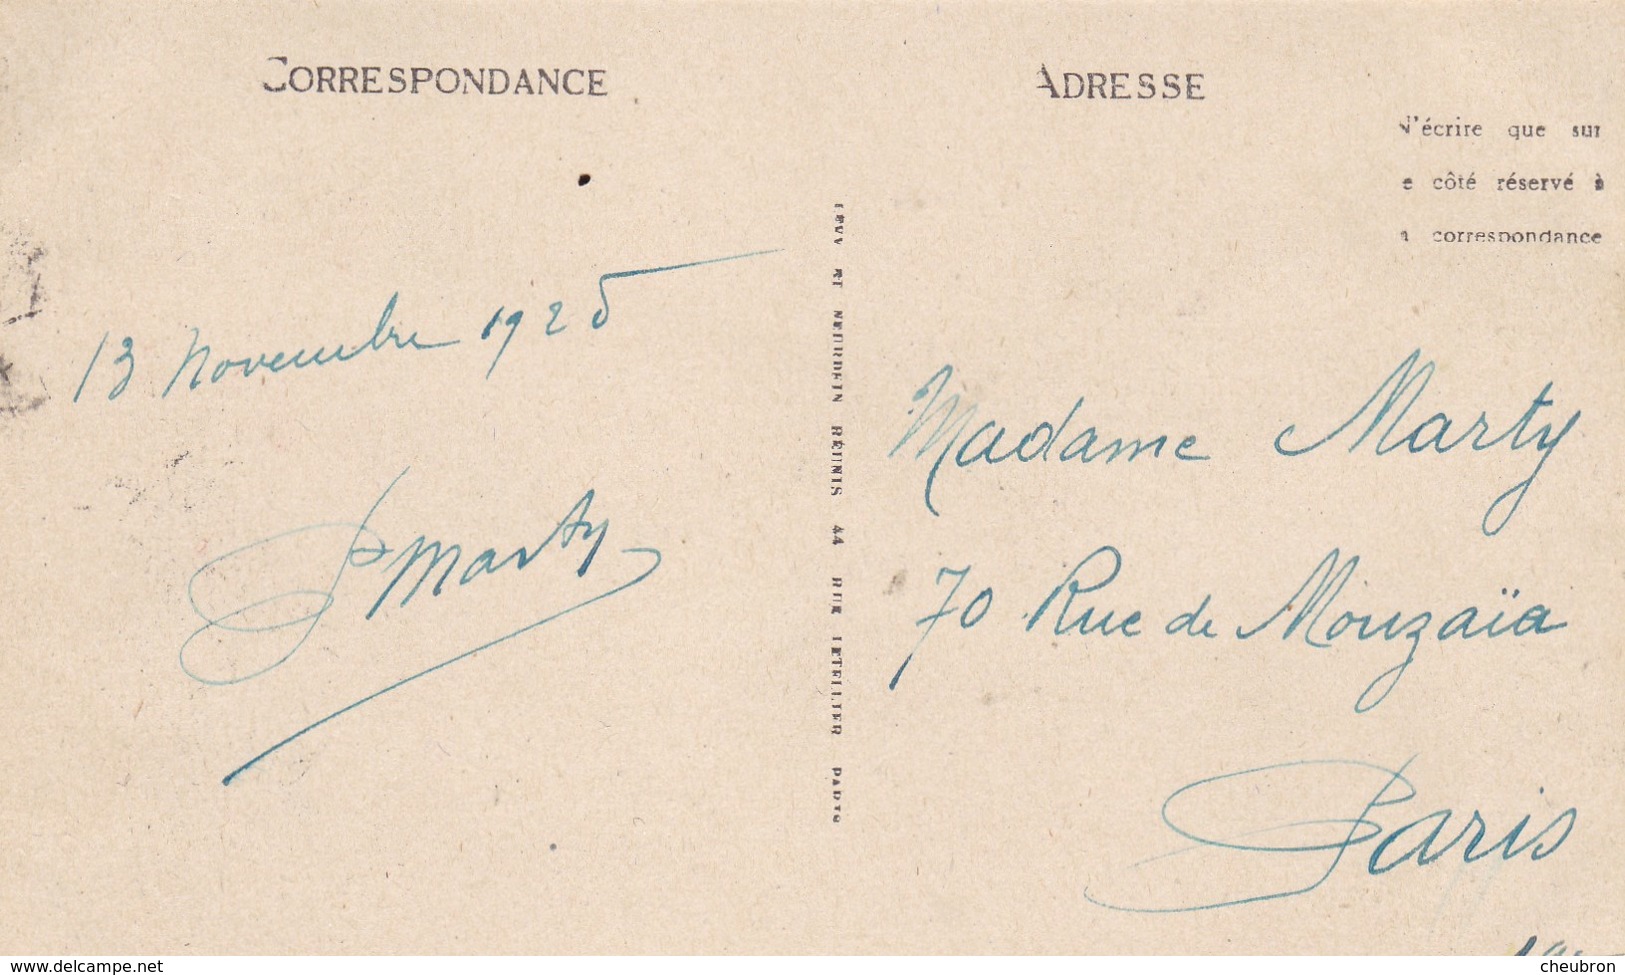 CORRESPONDANCE
13 Novembre 1925
Marty
LEVY ET NEURDEIN RÉUNIS 44 RUE LETELLIER PARIS
ADRESSE
N'écrire que sur
le côté réservé à
la correspondance
Madame Marty
70 Rue de Mouzaïa
Paris
www.delcampe.net
cheubron